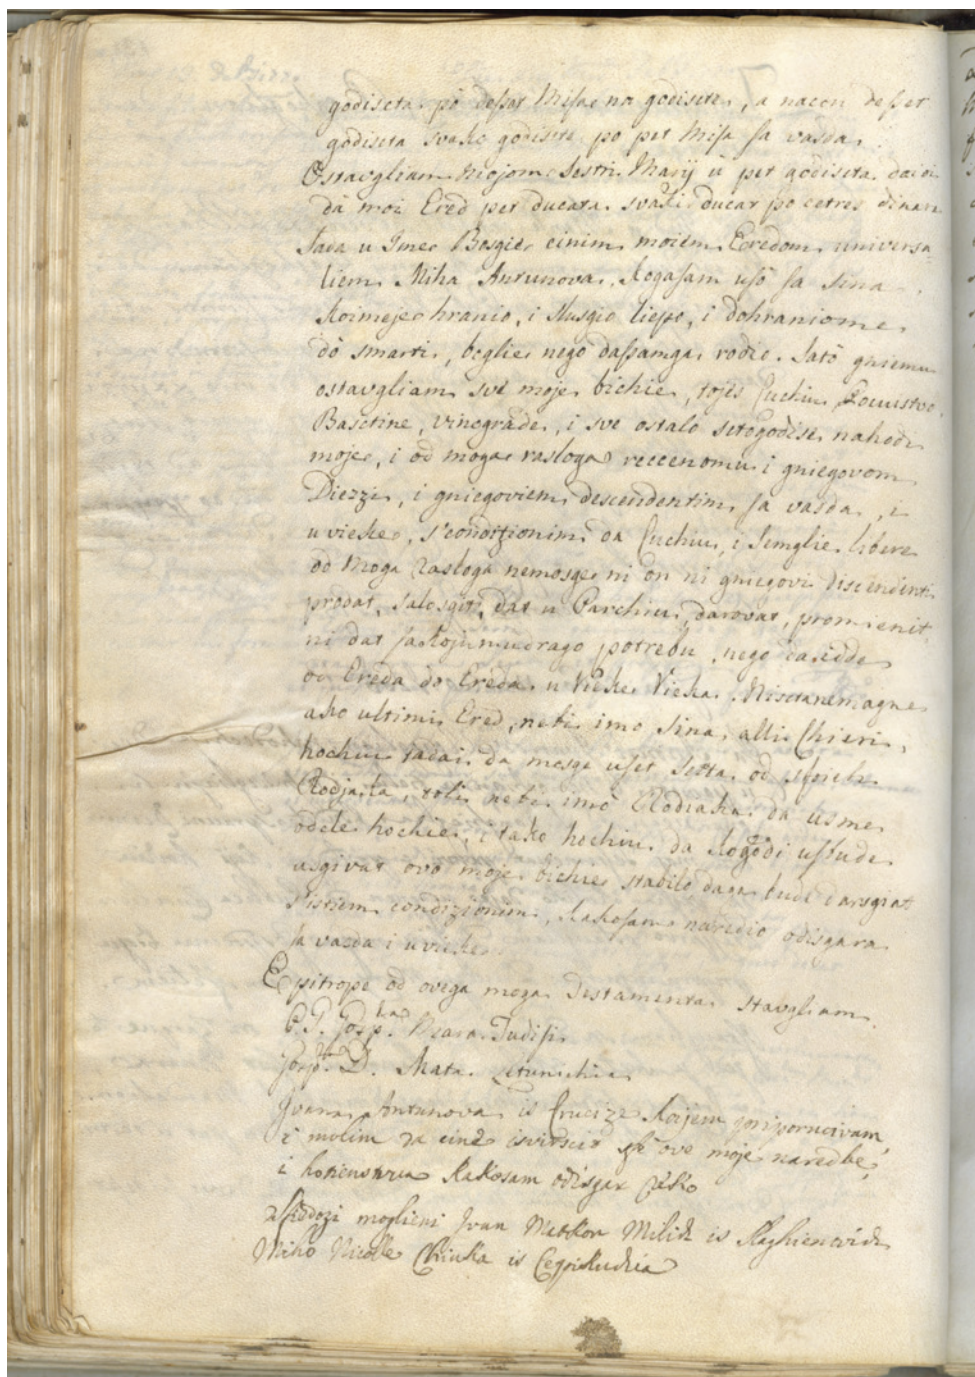 godiscta po desset Misa na godiscte, a nacon desset
godiscta svako godiscte po pet Misa sa vasda.
Ostavgliam Mojom Sestri Marij u pet godiscta
da moi Ered pet ducata svaki ducat po cetres dinara
Sada u Ime Bosgie cinim moiem Eredom universa
liem Miha Antunova, kogasam uso sa sina
koimeje hranio, i slusgio liepo, i dohraniome
do smarti, boglie nego dassamga rodio. Sato gniemu
ostavgliam sve moje bichie, tojes Cuchiu
Basctine, vinograde, i sve ostalo sctogodise nahodi
moje, i od moga rasloga reccenomu i gniegovom
Diezzi, i gniegoviem descendentim sa vasda, i
u vieke, s'condizionim da Cuchiu, i Semglie libere
od Moga Rasloga nemosge ni on ni gniegovi discendenti
prodat, salosgit, dat u Parchiu, darovat, promienit
ni dat sakojumudrago potrebu, nego daidde
od Ereda do Ereda u Vieke Vieka. Nisctanemagne
ako ultimi Ered, nebi imo sina, alli Chieri,
hochiu tadai da mosge uset od
Rodjaka, nebi imo Rodiaka da usme
odkle hochie, i tako hochiu da kogodi ussude
usgivat ovo moje bichie stabilo daga bude darsgiat
s'istiem condizionim, kakosam naredio odisgara
sa vasda i uvieke.
Epitrope od ovega moga Testamenta stavgliam
P. G. Gosp.
Gosp. D. Mata
Ivana Antunova is Crucize koijem priporucivam,
i molim da cine isvirscit sve ove moje naredbe,
i hotienstva kakosam odisgar reko
Ssiddozi moglieni Ivan Matkov Milich is
Miho Nicole Chiuka is Cepikuchia